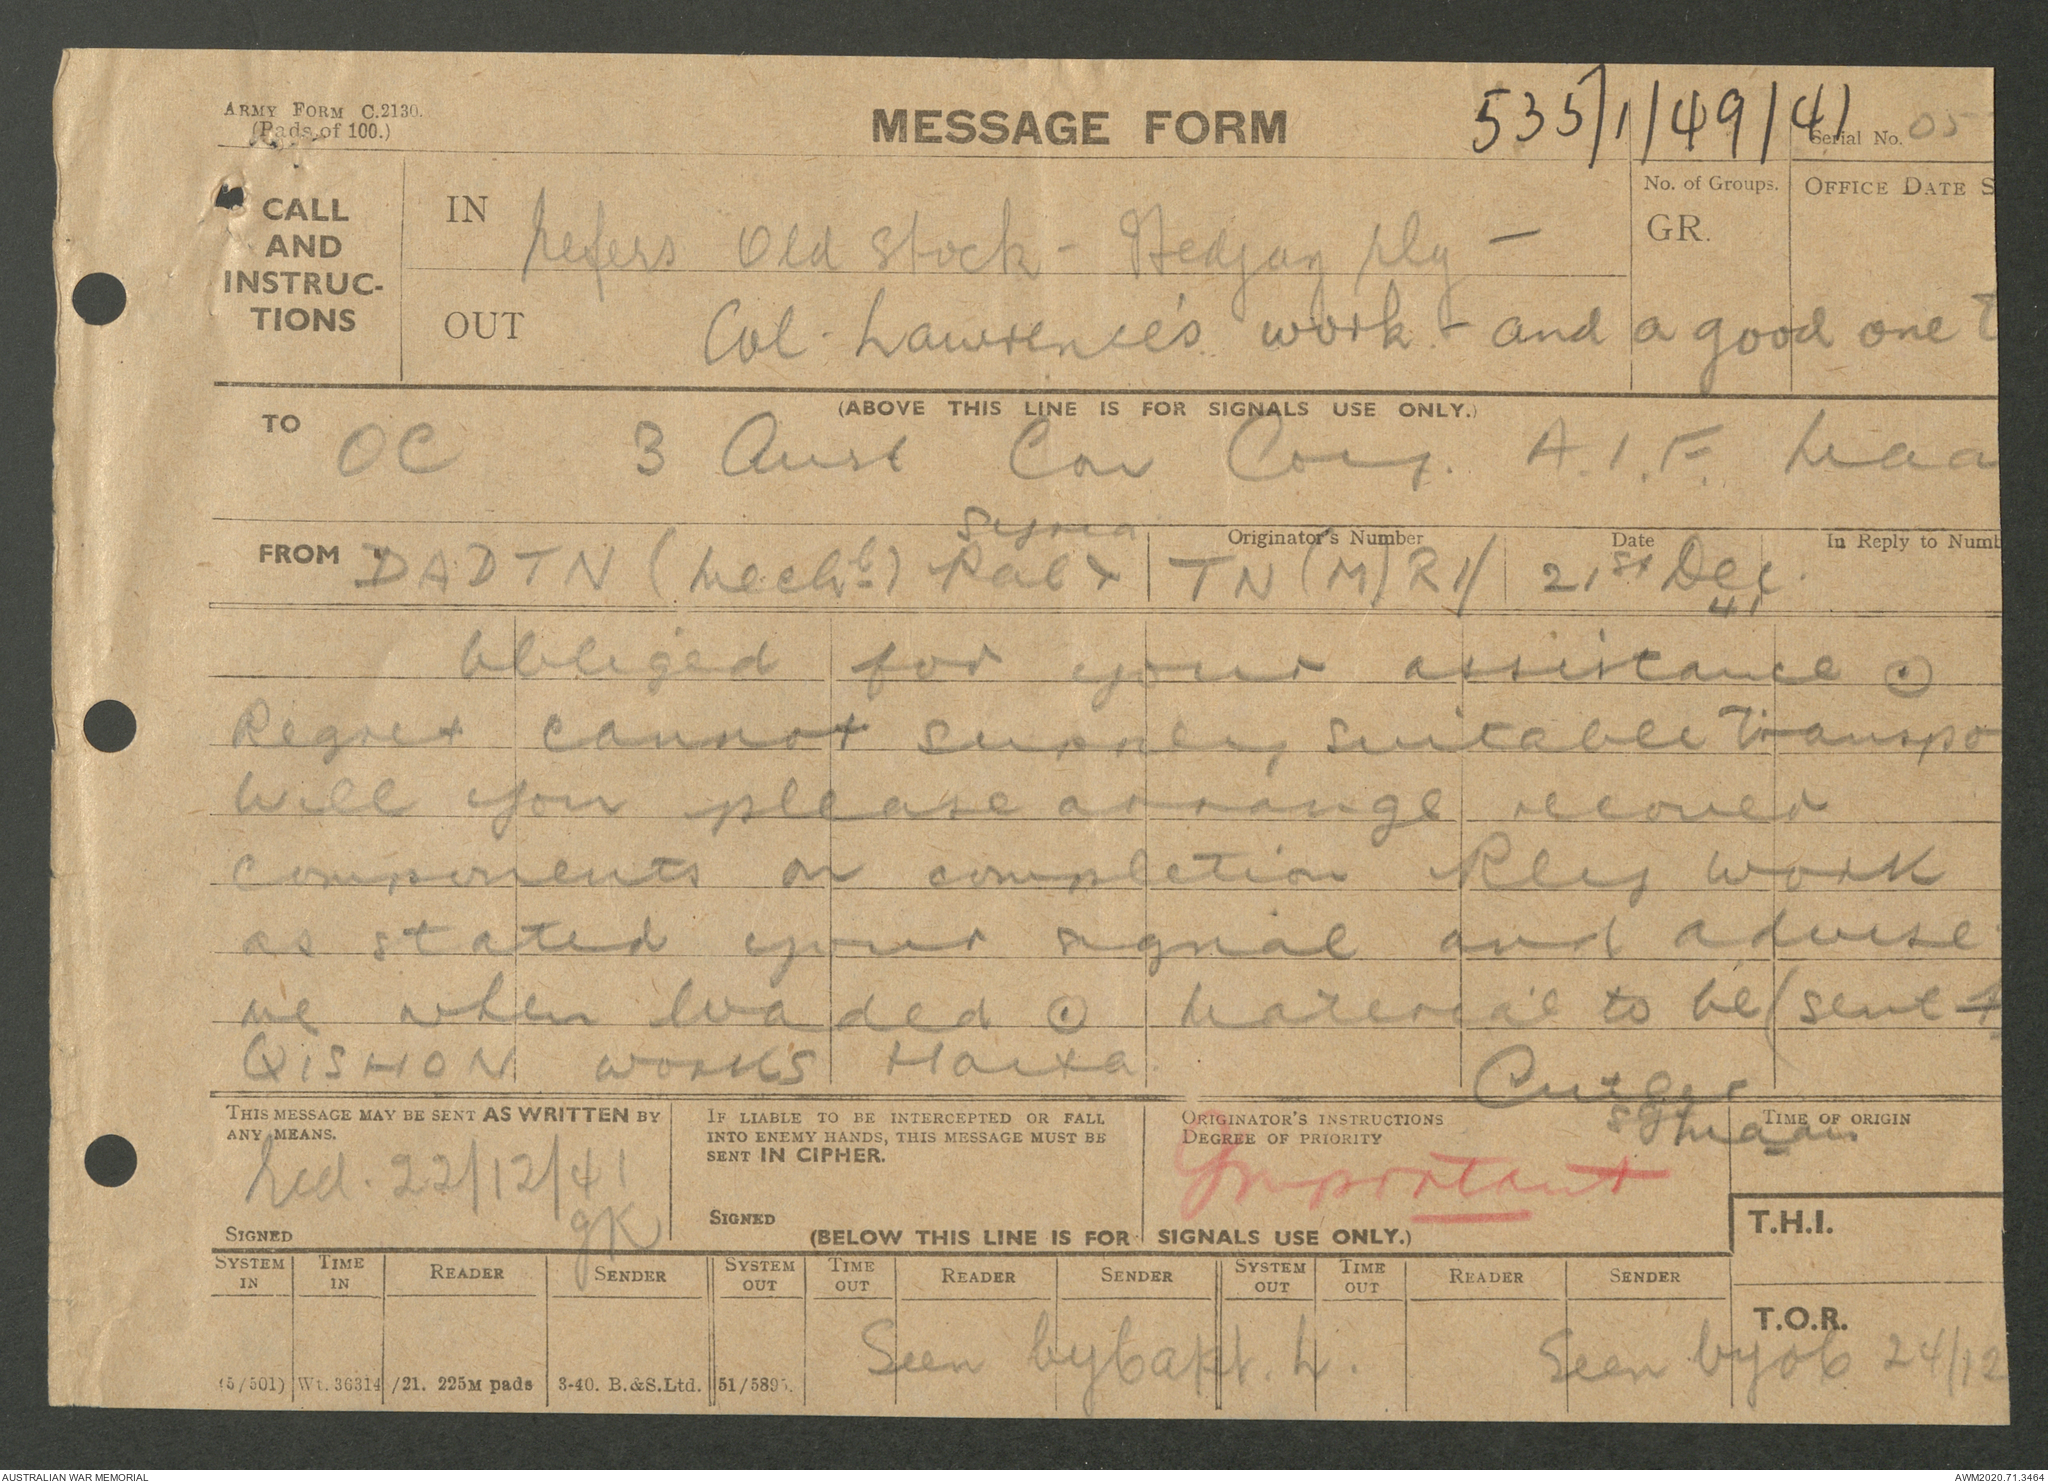 ARMY FORM C.2130.
(Pads of 100.)
MESSAGE FORM
535/1/49/41
Serial No. 05
CALL
AND
INSTRUC-
TIONS
IN
refers Old Stock - Hedjaz rly -
No. of Groups.
GR.
OFFICE DATE S
OUT
Col. Lawrence's work - and a good one
(ABOVE THIS LINE IS FOR SIGNALS USE ONLY.)
TO
OC 3 Aust Coy. A.I.F. Maa
FROM
DADTN (Mech) Pal & Syria
Originator's Number
TN(M)R1/
Date
21st Dec.
41
In Reply to Numb
Obliged for your assistance ⊙
Regret cannot supply suitable Transpo
Will you please arrange recover
components on completion Rly work
as stated your signal and advise
me when loaded ⊙ Material to be (sent
QISHON works Haifa
THIS MESSAGE MAY BE SENT AS WRITTEN BY
ANY MEANS.
Recd. 22/12/41
gK
SIGNED
IF LIABLE TO BE INTERCEPTED OR FALL
INTO ENEMY HANDS, THIS MESSAGE MUST BE
SENT IN CIPHER.
SIGNED
ORIGINATOR'S INSTRUCTIONS
DEGREE OF PRIORITY
Important
Maan
TIME OF ORIGIN
T.H.I.
(BELOW THIS LINE IS FOR SIGNALS USE ONLY.)
SYSTEM IN
TIME IN
READER
SENDER
SYSTEM OUT
TIME OUT
READER
SENDER
SYSTEM OUT
TIME OUT
READER
SENDER
T.O.R.
Seen by Capt. L.
Seen by OC 24/12
(5/501) Wt. 36314/21. 225M pads 3-40. B.&S.Ltd. 51/5895.
AUSTRALIAN WAR MEMORIAL
AWM2020.71.3464